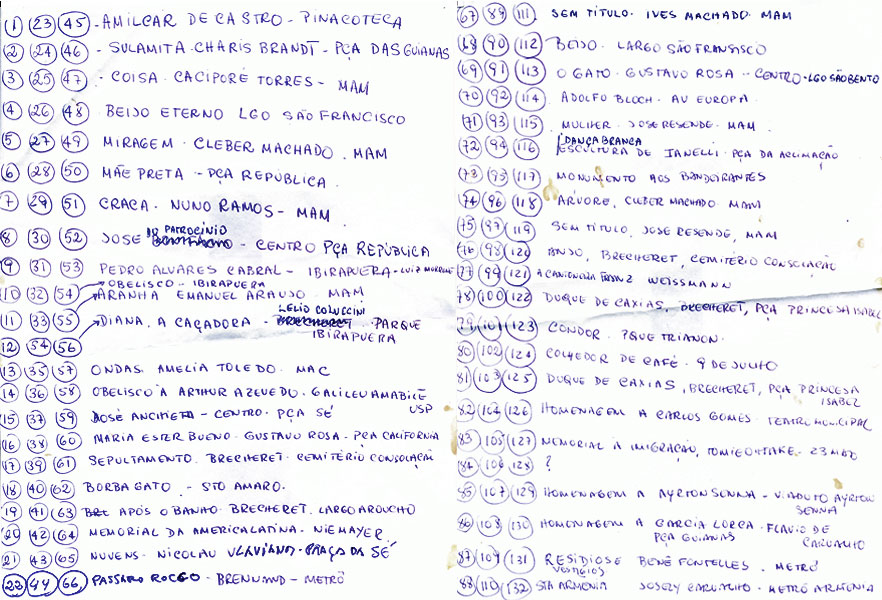 1 23 45 - AMILCAR DE CASTRO - PINACOTECA
2 24 46 - SULAMITA - CHARIS BRANDT - PÇA DAS GUIANAS
3 25 47 - COISA - CACIPORÉ TORRES - MAM
4 26 48 BEIJO ETERNO LGO SÃO FRANCISCO
5 27 49 MIRAGEM - CLEBER MACHADO . MAM
6 28 50 MÃE PRETA - PÇA REPUBLICA.
7 29 51 CRACA - NUNO RAMOS - MAM
8 30 52 JOSE DO PATROCÍNIO - CENTRO PÇA REPÚBLICA
9 31 53 PEDRO ALVARES CABRAL - IBIRAPUERA - LUIZ
OBELISCO - IBIRAPUERA
10 32 54 ARANHA EMANUEL ARAUJO. MAM
11 33 55 DIANA, A CAÇADORA - LELIO COLUCCINI BRECHERET - PARQUE
IBIRAPUERA
12 34 56
13 35 57 ONDAS. AMELIA TOLEDO. MAC
14 36 58 OBELISCO À ARTHUR AZEVEDO. GALILEU AMABILE
USP
15 37 59 JOSÉ ANCHIETA - CENTRO. PÇA SÉ
16 38 60 MARIA ESTER BUENO. GUSTAVO ROSA. PÇA CALIFORNIA
17 39 61 SEPULTAMENTO. BRECHERET. CEMITÉRIO CONSOLAÇÃO
18 40 62 BORBA GATO - STO AMARO.
19 41 63 APÓS O BANHO. BRECHERET. LARGO AROUCHO
20 42 64 MEMORIAL DA AMERICA LATINA. NIEMAYER
21 43 65 NUVENS. NICOLAU VLAVIANO - PRAÇA DA SÉ
22 44 66 PASSARO ROCCO. BRENNAND - METRÔ
67 89 111 SEM TÍTULO. IVES MACHADO. MAM
68 90 112 BEIJO. LARGO SÃO FRANSISCO
69 91 113 O GATO. GUSTAVO ROSA - CENTRO - LGO SÃO BENTO
70 92 114 ADOLFO BLOCH. AV EUROPA.
71 93 115 MULHER. JOSE RESENDE. MAM
DANÇA BRANCA
72 94 116 ESCULTURA DE IANELLI. PÇA DA ACLIMAÇÃO
73 95 117 MONUMENTO AOS BANDEIRANTES
74 96 118 ARVORE, CLEBER MACHADO. MAM
75 97 119 SEM TITULO, JOSE RESENDE, MAM
76 98 120 ANJO, BRECHERET, CEMITÉRIO CONSOLAÇÃO
77 99 121 A CANTONEIRA FRANZ WEISSMANN
78 100 122 DUQUE DE CAXIAS, BRECHERET, PÇA PRINCESA ISABEL
79 101 123 CONDOR. PQUE TRIANON.
80 102 124 COLHEDOR DE CAFÉ. 9 DE JULHO
81 103 125 DUQUE DE CAXIAS, BRECHERET, PÇA PRINCESA
ISABEL
82 104 126 HOMENAGEM A CARLOS GOMES. TEATRO MUNICIPAL
83 105 127 MEMORIAL À IMIGRAÇÃO, TOMIE OHTAKE. 23 MAIO
84 106 128 ?
85 107 129 HOMENAGEM A AYRTON SENNA - VIADUTO AYRTON
SENNA
86 108 130 HOMENAGEM A GARCIA LORCA - FLAVIO DE
PÇA GUIANAS CARVALHO
87 109 131 RESÍDIOS E BENÉ FONTELLES. METRÔ
VESTÍGIOS
88 110 132 STA ARMENIA JOSELY CARVALHO - METRÔ ARMENIA